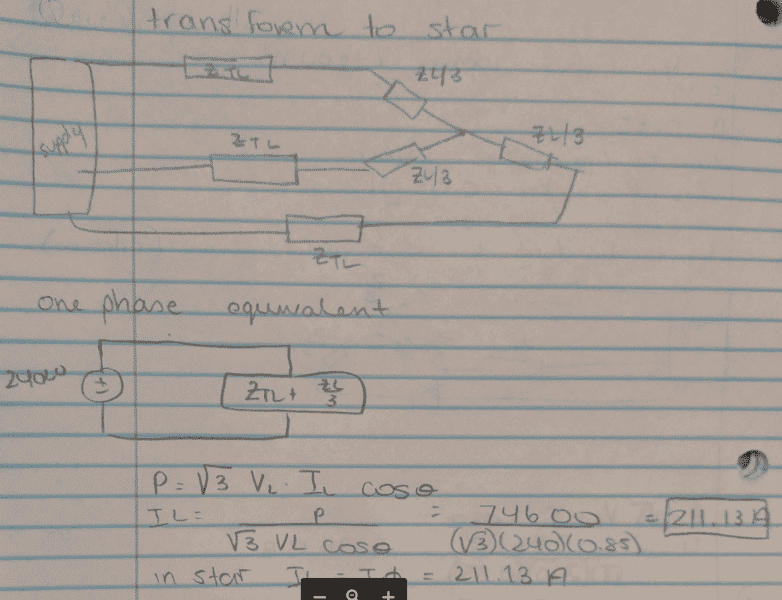 transform to star
ZTL
ZL/3
supply
ZTL
ZL/3
ZL/3
ZTL
one phase equivalent
240∠0
±
ZTL + ZL/3
P = √3 VL · IL cosθ
IL = P / √3 VL cosθ = 74600 / (√3)(240)(0.85) = 211.13 A
in star IL = Iϕ = 211.13 A